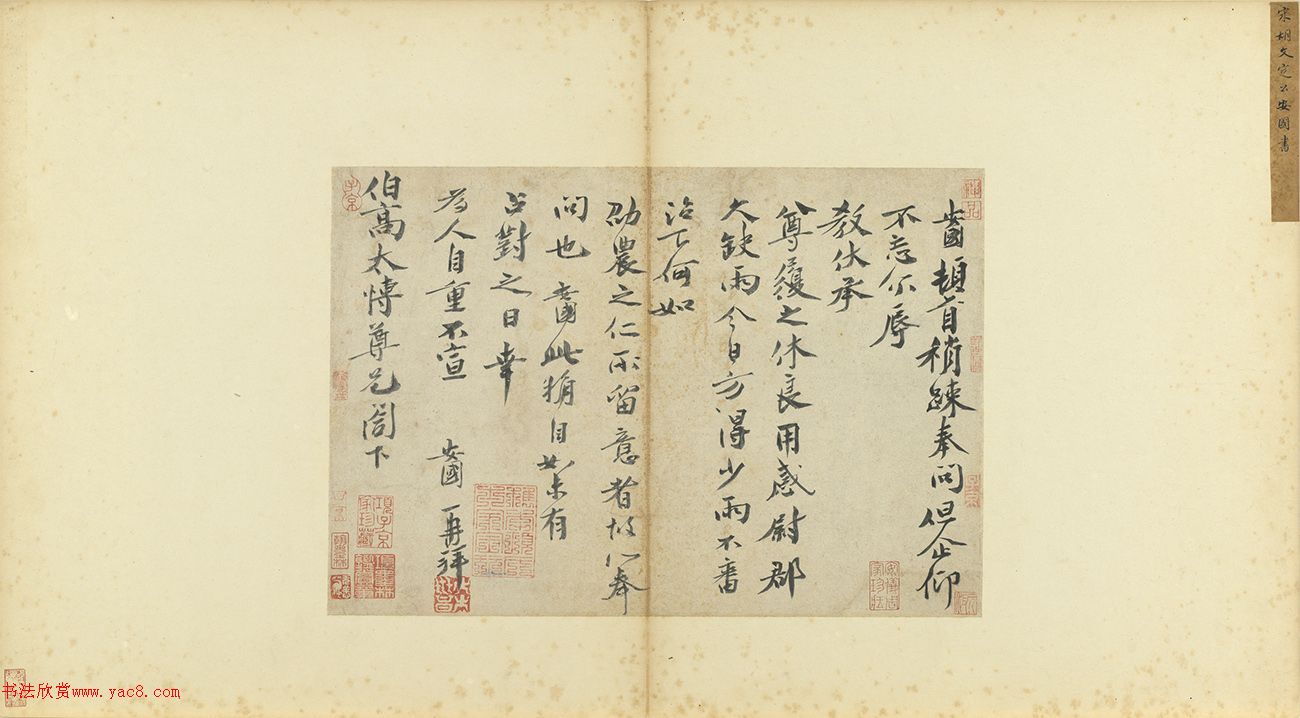 宋胡文定公安國書
安國頓首稍踈奉問但企仰
不忘尒辱
教伏承
尊履之休良用感尉郡
久缺雨今日方得少雨不審
治下何如
劭農之仁所留意者故以奉
問也安國此猶自如未有
占對之日幸
為人自重不宣 安國再拜
伯高太博尊兄閤下
子京
項子京家珍藏
书法欣赏www.yac8.com